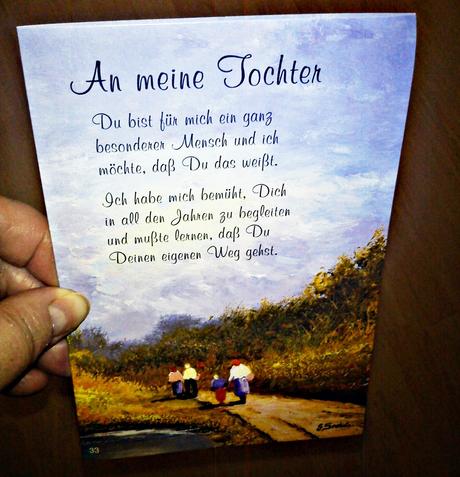 An meine Tochter
Du bist für mich ein ganz
besonderer Mensch und ich
möchte, daß Du das weißt.
Ich habe mich bemüht, Dich
in all den Jahren zu begleiten
und mußte lernen, daß Du
Deinen eigenen Weg gehst.
33